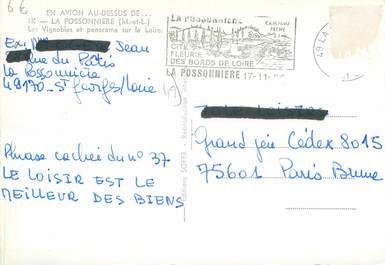 6€
EN AVION AU-DESSUS DE...
LA POSSONNIERE (M.-et-L.)
Les Vignobles et panorama sur la Loire.
Jean
rue du Pâtis
La Possonnière
49170 - St Georges/Loire
Phrase cachée du n° 37
LE LOISIR EST LE
MEILLEUR DES BIENS
LA POSSONNIERE
CAMPING
PECHE
CITE
FLEURIE
DES BORDS DE LOIRE
LA POSSONNIERE 17-11
49 LA
Editions SOFER
Grand jeu Cédex 8015
75601 Paris Brune